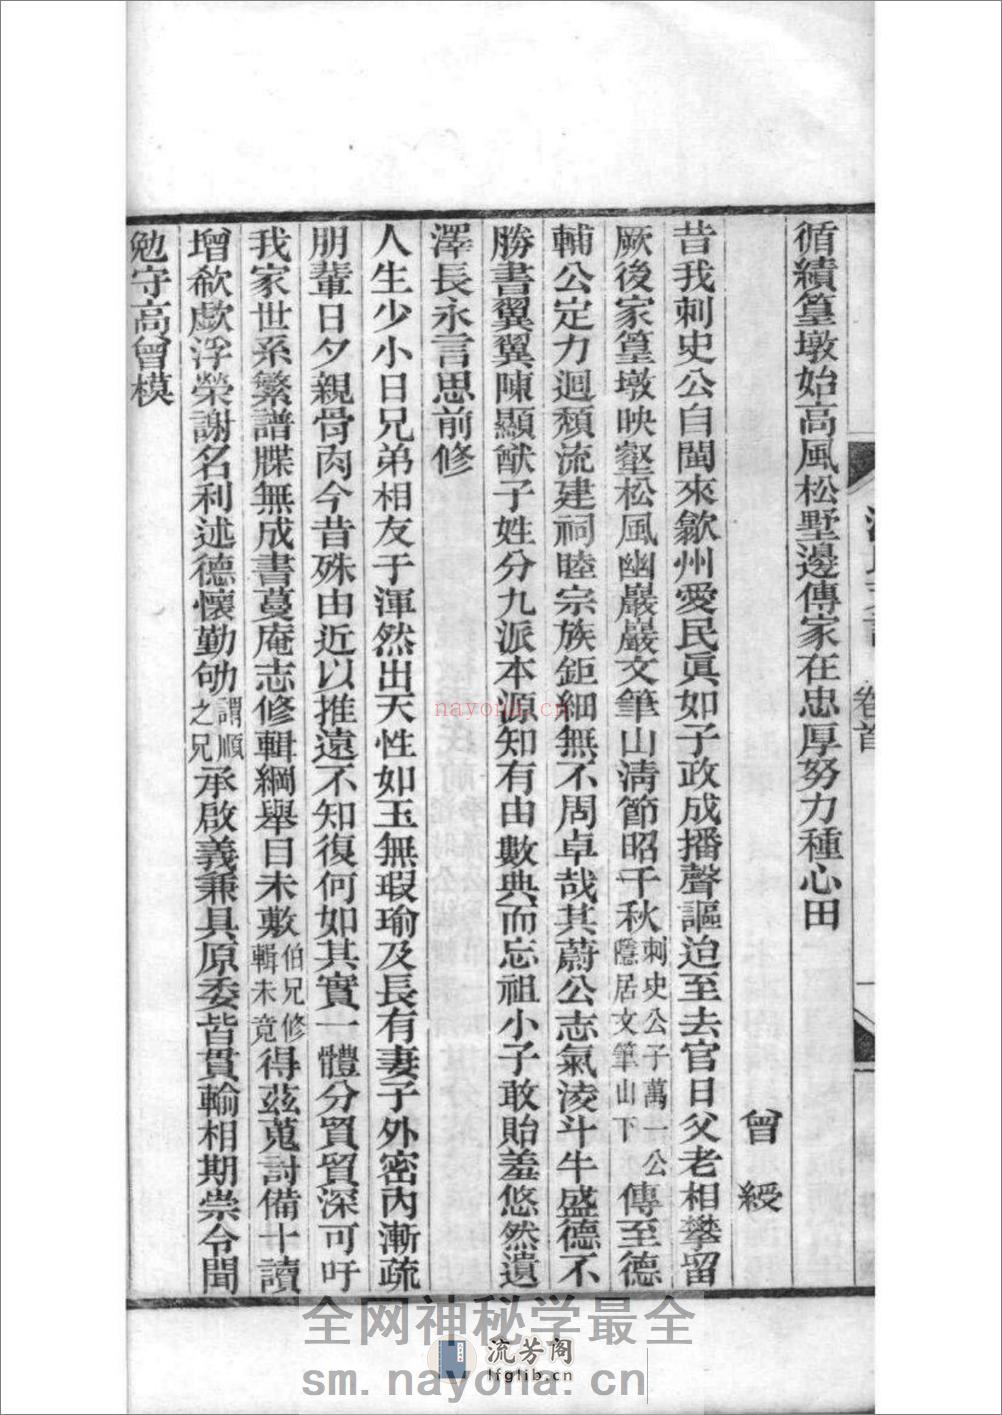 循績篁墩始高風松墅邊傳家在忠厚努力種心田
曾綬
昔我刺史公自閩來歙州愛民眞如子政成播聲謳迨至去官日父老相攀留
厥後家篁墩映壑松風幽巖巖文筆山清節昭千秋刺史公子萬一公隱居文筆山下傳至德
輔公定力迴頹流建祠睦宗族鉅細無不周卓哉其蔚公志氣淩斗牛盛德不
勝書翼翼陳顯猷子姓分九派本源知有由數典而忘祖小子敢貽羞悠然遺
澤長永言思前修
人生少小日兄弟相友于渾然出天性如玉無瑕瑜及長有妻子外密內漸疏
朋輩日夕親骨肉今昔殊由近以推遠不知復何如其實一體分貿貿深可吁
我家世系繁譜牒無成書蔓庵志修輯綱舉目未敷伯兄修輯未竟得茲蒐討備十讀
增欷歔浮榮謝名利述德懷勤劬謂順之兄承啟義兼具原委皆貫輸相期崇令聞
勉守高曾模
卷首
nayona.cn
全网神秘学最全
流芳阁
lfglib.cn
sm.nayona.cn